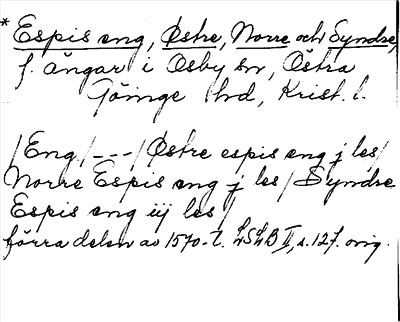 *Espis eng, Østre, Norre och Syndre,
f. ängar i Osby sn, Östra
Göinge hd, Krist. l.
/Eng/---/Østre espis eng j les/
Norre Espis eng j les/Syndre
Espis eng iij les/
förra delen av 1570-t. LSLB II, s. 127. orig.